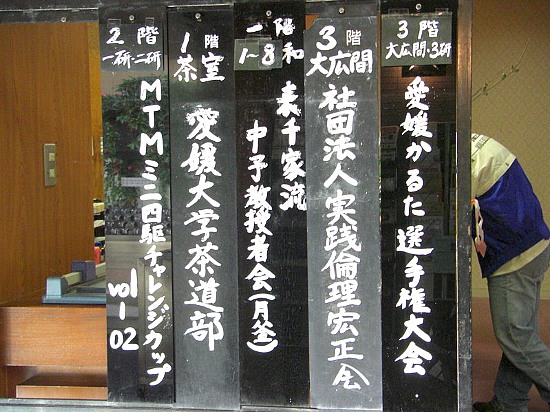 3階
大広間・3研
愛媛かるた選手権大会
3階
大広間
社団法人実践倫理宏正会
一階和
1~8
表千家流
中予教授者会(月釜)
1階
茶室
愛媛大学茶道部
2階
一研・二研
MTMミニ四駆チャレンジカップ
vol-02